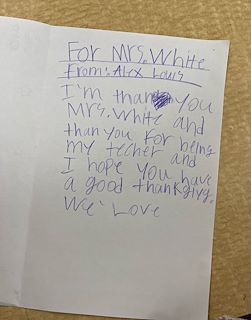 For Mrs. White
From: Alex Louis
I'm than you
Mrs. White and
than you for being
my techer and
I hope you have
a good thankgivg.
We Love